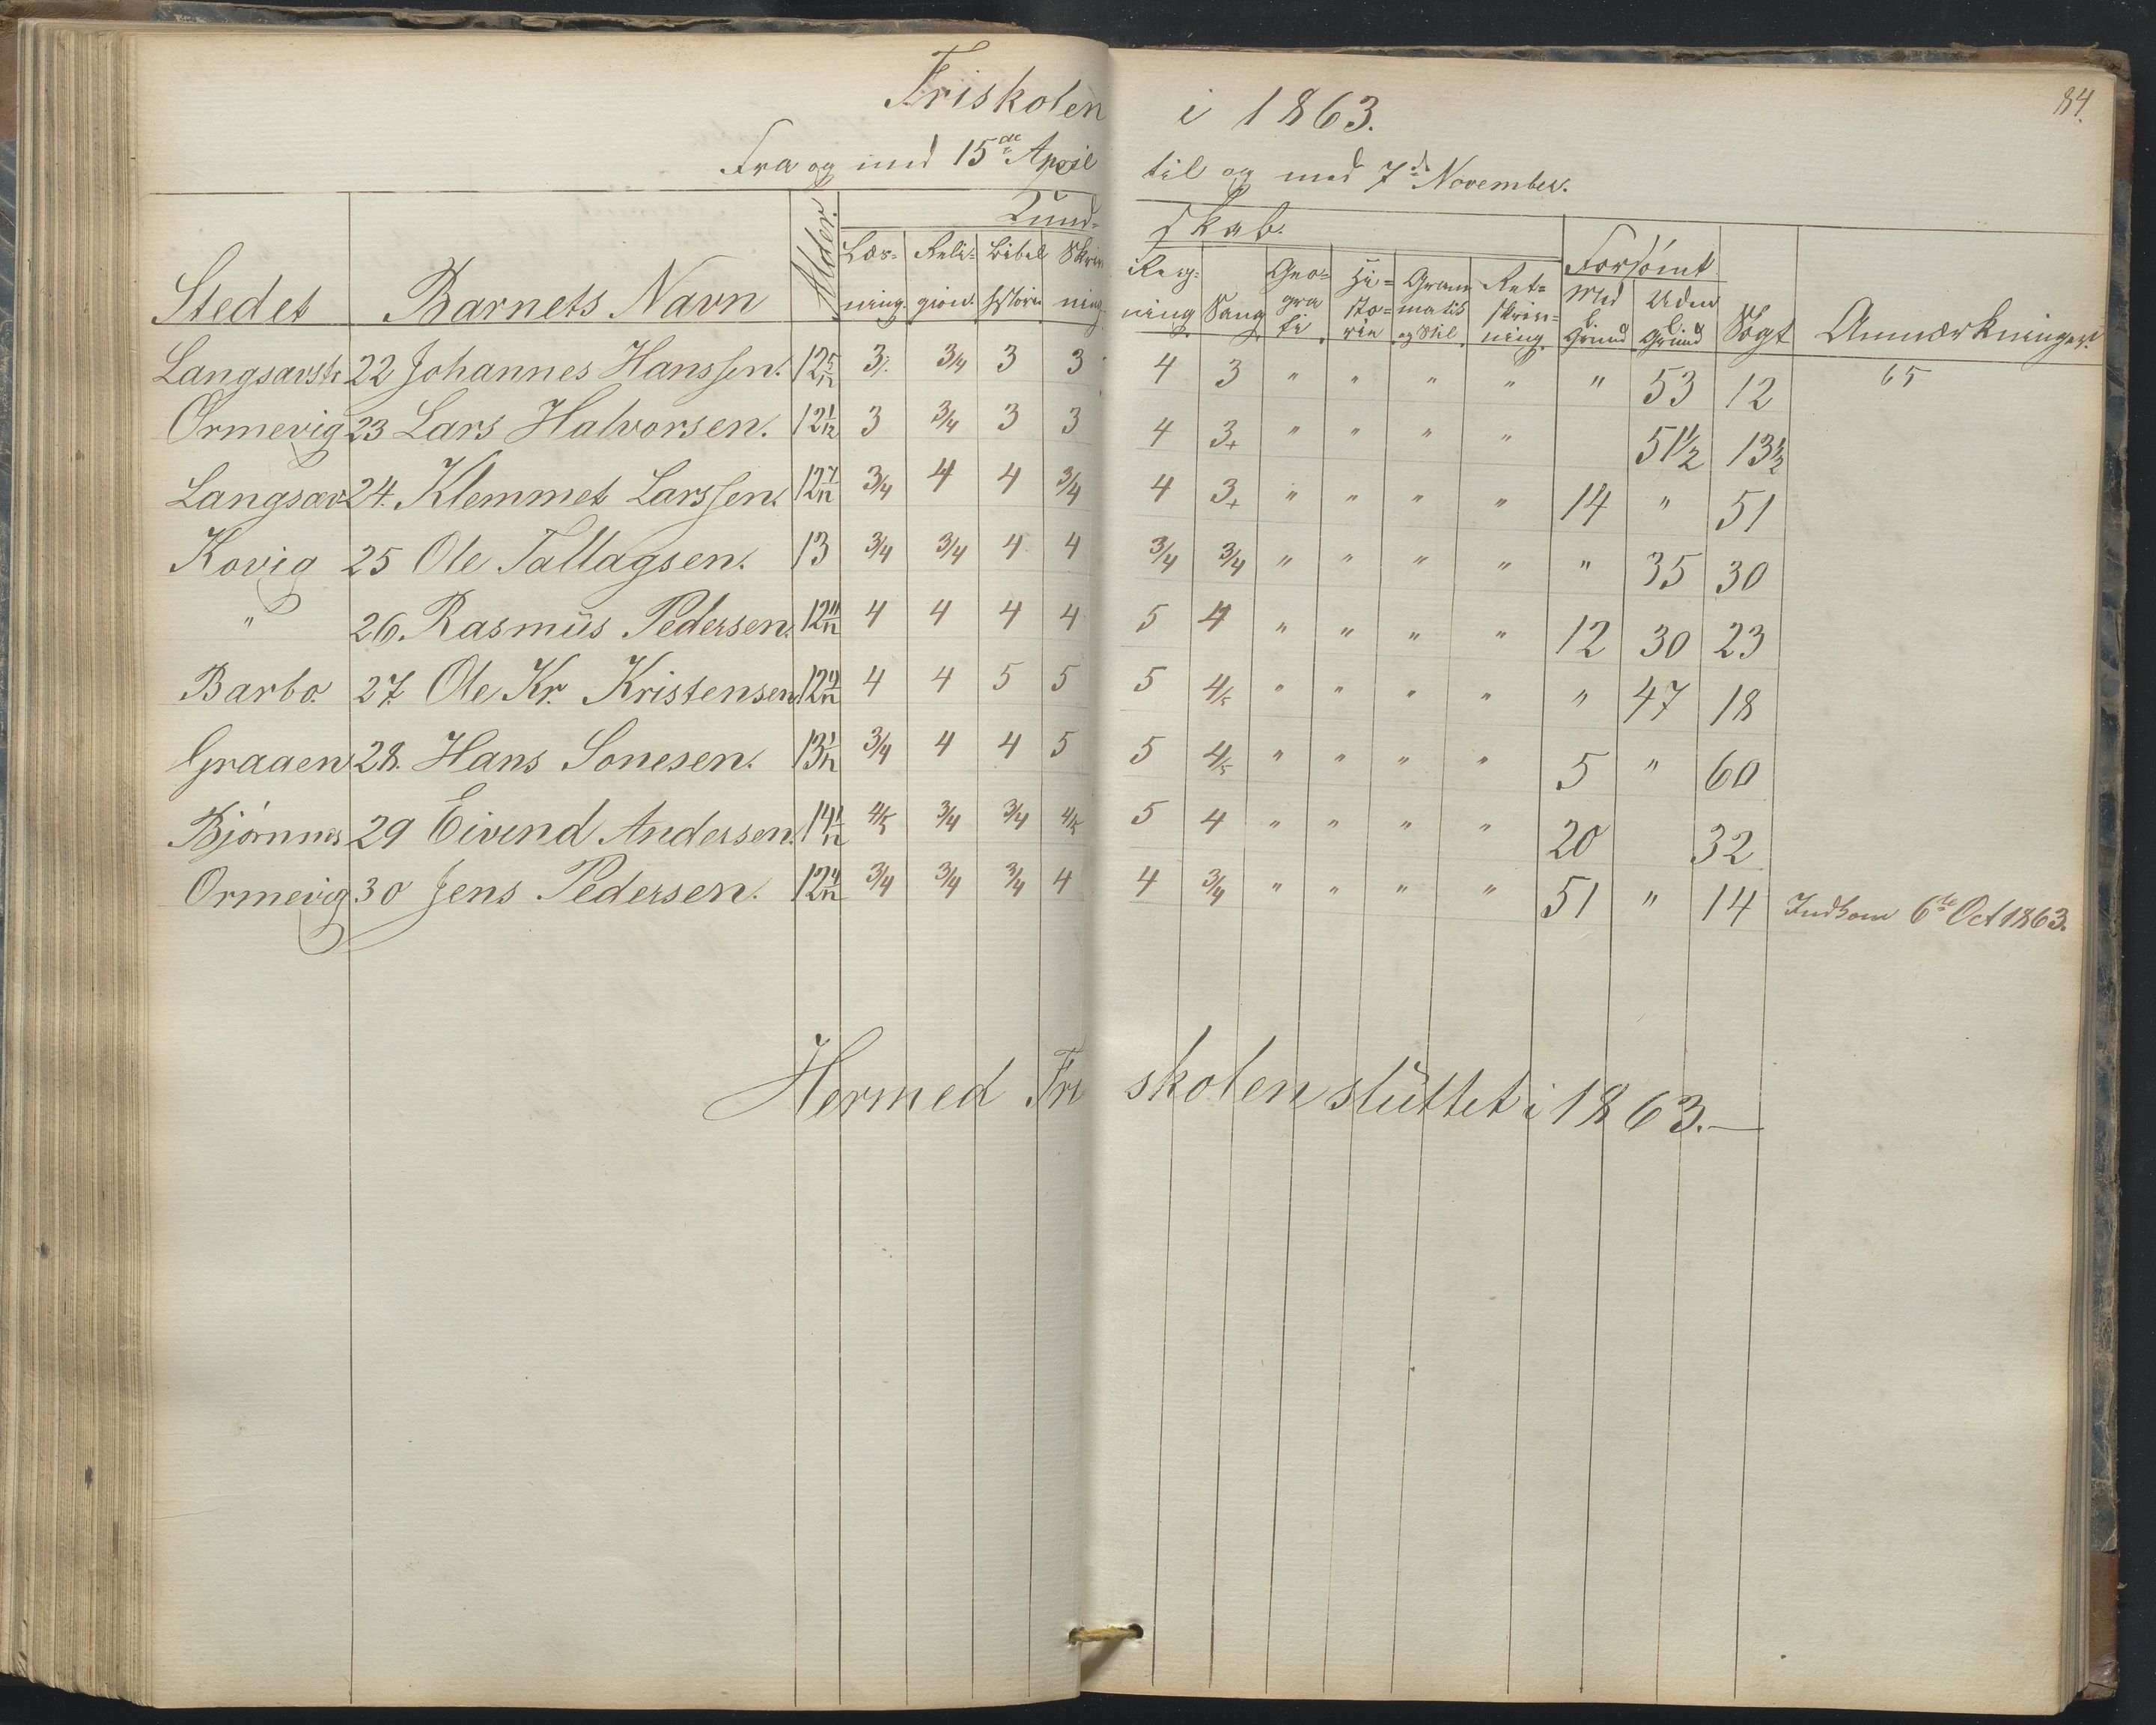 84.
Friskolen i 1863.
Fra og med 15de April til og med 7de November.
Stedet Barnets Navn Alder. Kund- skab. Forsömt Søgt Anmærkninger.
Læs- ning. Reli- gion. Bibel historie Skriv- ning Reg- ning Sang Geo- gra fi Hi- sto- rie Gram matik og Stil Ret- skriv- ning Med Grund Uden Grund
Langsævstr 22 Johannes Hanssen. 12 5/12 3 3/4 3 3 4 3 " " " " " 53 12 65
Ormevig 23 Lars Halvorsen. 12 1/12 3 3/4 3 3 4 3+ " " " " 51 1/2 13 1/2
Langsæv 24. Klemmet Larssen. 12 7/12 3/4 4 4 3/4 4 3+ " " " " 14 " 51
Kovig 25 Ole Tallagsen. 13 3/4 3/4 4 4 3/4 3/4 " " " " " 35 30
" 26. Rasmus Pedersen. 12 11/12 4 4 4 4 5 4 " " " " 12 30 23
Barbo. 27. Ole Kr. Kristensen. 12 9/12 4 4 5 5 5 4/5 " " " " " 47 18
Graaen 28. Hans Sonesen. 13 1/12 3/4 4 4 5 5 4/5 " " " " 5 " 60
Bjørnnes 29 Eivind Andersen. 14 1/12 4/5 3/4 3/4 4/5 5 4 " " " " 20 32
Ormevig 30 Jens Pedersen. 12 4/12 3/4 3/4 3/4 4 4 3/4 " " " " 51 " 14 Indkom 6te Oct 1863.
Hermed Friskolen sluttet i 1863.—